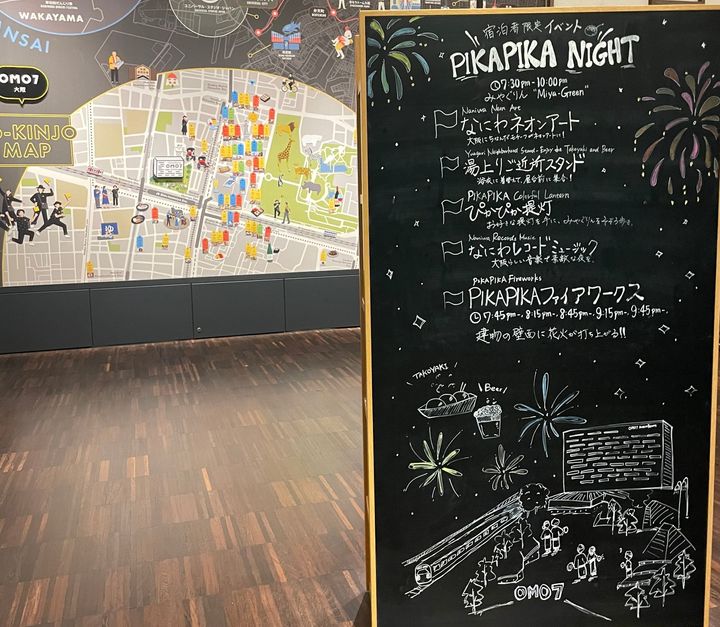 WAKAYAMA
NSAI
ユニバーサル・スタジオ・ジャパン
OMO7
大阪
O-KINJO
MAP
OMO7
宿泊者限定イベント
PIKAPIKA NIGHT
7:30pm-10:00pm
みやぐりん "Miya-Green"
Naniwa Neon Art
なにわネオンアート
Yuagari Neighborhood Stand - Enjoy the Takoyaki and Beer
湯上りご近所スタンド
PIKAPIKA Colorful Lantern
ぴかぴか提灯
お好きな提灯を手に、みやぐりんをそぞろ歩き。
Naniwa Records Music
なにわレコードミュージック
大阪らしい音楽で素敵な夜を。
PIKAPIKA Fireworks
PIKAPIKAファイアワークス
7:45pm-, 8:15pm-, 8:45pm-, 9:15pm-, 9:45pm-.
建物の壁面に花火が打ち上がる!!
TAKOYAKI
Beer
OMO7
OMO7